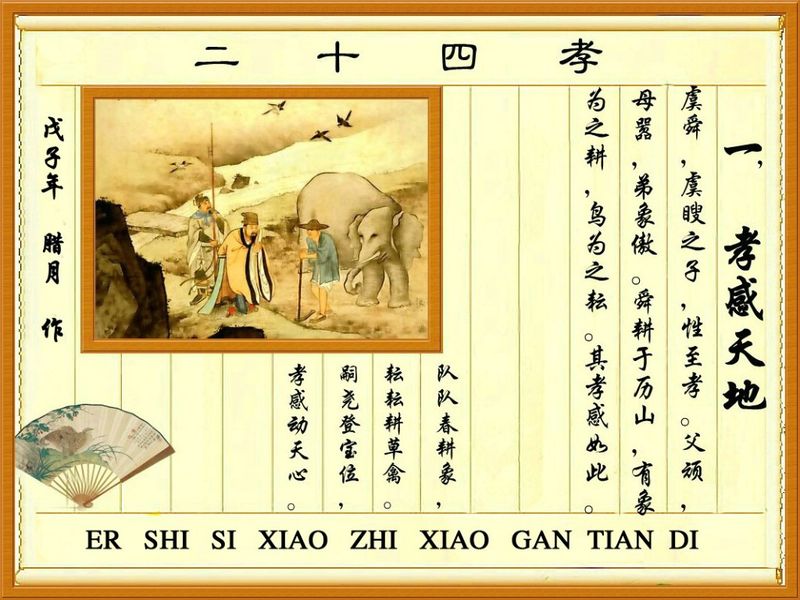 二十四孝
一，孝感天地
虞舜，虞瞍之子，性至孝。父顽，
母嚣，弟象傲。舜耕于历山，有象
为之耕，鸟为之耘。其孝感如此。
队队春耕象，
耘耘耕草禽。
嗣尧登宝位，
孝感动天心。
戊子年 腊月 作
ER SHI SI XIAO ZHI XIAO GAN TIAN DI